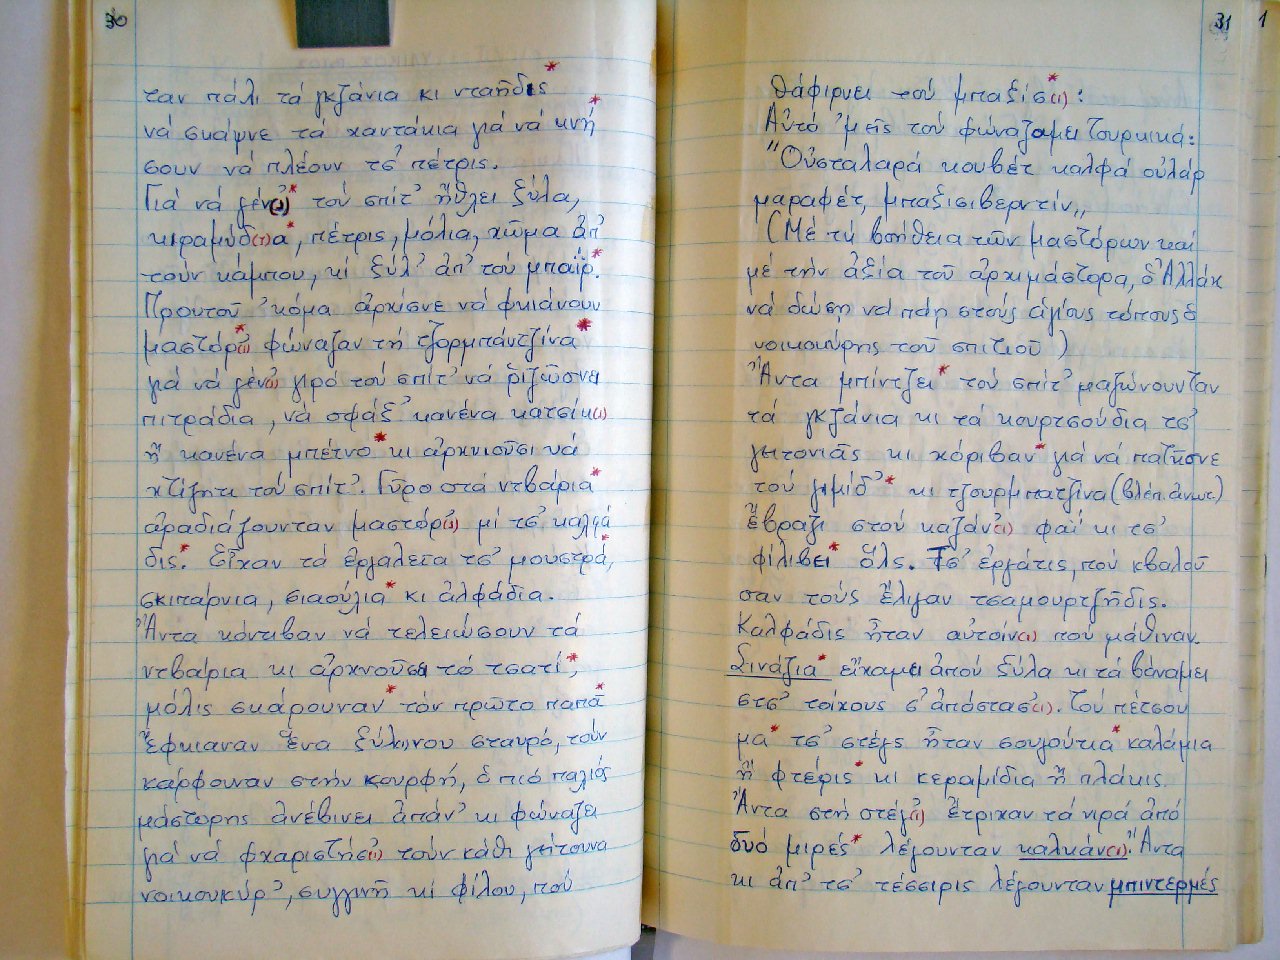 30
ταν πάλι τά γκζάνια κι νταηδις*
νά σκάψνε τά χαντάκια γιά νά κνή*
σουν νά πλέουν τσ' πέτρις.
Γιά νά γέν(ι)* τού σπίτ' ἤθλει ξύλα,
κιραμύδ(ι)α*, πέτρις, μόλια, χῶμα ἀπ'
τούν κάμπου, κι ξύλ' ἀπ' τού μπαΐρ*.
Προυτοῦ 'κόμα ἀρχίσνε νά φκιάνουν
μαστόρ(ι)* φώναζαν τή τζορμπάντζίνα*
γιά νά γέν(ι) γιρό τού σπίτ' νά ῥιζῶσνει
πιτράδια, νά σφάξ' κανένα κατσίκ(ι)
ἤ κανένα μπέτνο* κι ἀρχνιοῦσι νά
χτίζητι τού σπίτ'. Γῦρο στά ντβάρια*
ἀραδιάζουνταν μαστόρ(ι) μί τσ' καλφά
δις*. Εἶχαν τά ἐργαλεῖα τσ' μουστρά*,
σκιπάρνια, σιαούλια* κι ἀλφάδια.
Ἄντα κόντιβαν νά τελειώσουν τά
ντβάρια κι ἀρχνοῦσι τό τσατί*,
μόλις σκάρουναν* τόν πρῶτο παπᾶ*
Ἔφκιαναν ἕνα ξύλινου σταυρό, τούν
κάρφουναν στήν κουρφή, ὁ πιό παλιός
μάστορης ἀνέβινει ἀπάν' κι φώναζει
γιά νά φχαριστήσ(ι) τούν κάθι γείτουνα
νοικουκύρ', συγγινῆ κί φίλου, πού
31
1
θάφιρνει τού μπαξίσ(ι)*:
Αὐτό 'μεῖς τού φώναζαμει Τουρκικά:
"Οὐσταλαρά κουβέτ καλφά οὐλάρ
μαραφέτ, μπαξισιβερντίν,,
(Μέ τή βοήθεια τῶν μαστόρων καί
μέ τήν ἀξία τοῦ ἀρχιμάστορα, ὁ Ἀλλάχ
νά δώση νά πάη στούς ἁγίους τόπους ὁ
νοικοκύρης τοῦ σπιτιοῦ)
Ἄντα μπίντζει* τού σπίτ' μαζώνουνταν
τά γκζάνια κι τά κουρτσούδια τσ'
γειτονιᾶς κι χόριβαν* γιά νά πατῆσνε
τού γιμίδ'* κι τζουρμπατζίνα (βλέπ. ἄνωτ.)
ἔβραζι στού καζάν(ι) φαΐ κι τσ'
φίλιβει* ὅλς. Τσ' ἐργάτις, πού κβαλοῦ
σαν τούς ἔλιγαν τσαμουρτζῆδις.
Καλφάδις ἦταν αὐτοίν(ι) πού μάθιναν.
Σινάζια* εἴχαμει ἀπού ξύλα κι τά βάναμει
στσ' τοίχους σ' ἀπόστασ(ι). Τού πέτσου
μα* τσ' στέγς ἦταν σουγούτια* καλάμια
ἤ φτέρις* κι κεραμίδια ἤ πλάκις
Ἄντα στή στέγ(ι) ἔτριχαν τά νιρά ἀπό
δυό μιρές* λέγουνταν καλκάν(ι). Ἄντα
κι ἀπ' τσ' τέσσιρις λέγουνταν μπιντερμές